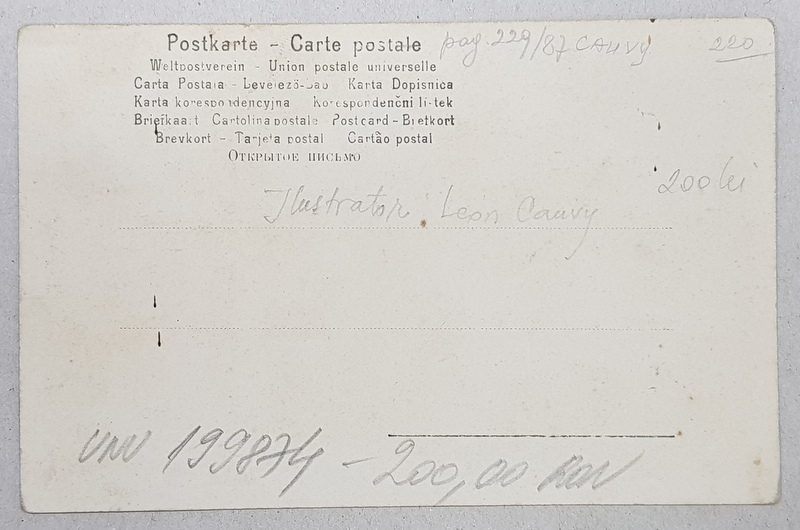 Postkarte - Carte postale pag. 229/87 CAUVY 220
Weltpostverein - Union postale universelle
Carta Postala - Levelező-Lap Karta Dopisnica
Karta korespondencyjna Korespondenčni listek
Briefkaart Cartolina postale Postcard - Brefkort
Brevkort - Tarjeta postal Cartão postal
Открытое письмо
200 lei
Ilustrator Léon Cauvy
199874 - 200,00 RON